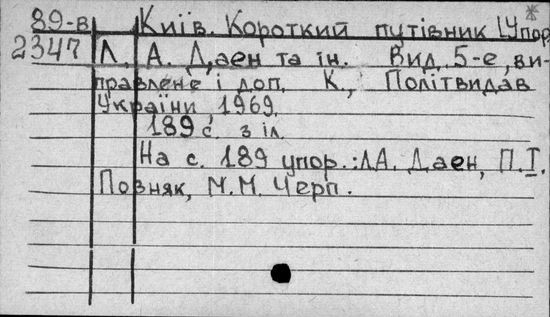 89-в Київ. Короткий путівник [Упор.
2347 Л. А. Даен та ін. Вид. 5-е, ви-
правлене і доп. К., Політвидав
України, 1969.
189 с. з іл.
На с. 189 упор.: Л.А. Даен, П.І.
Позняк, М.М. Черп.